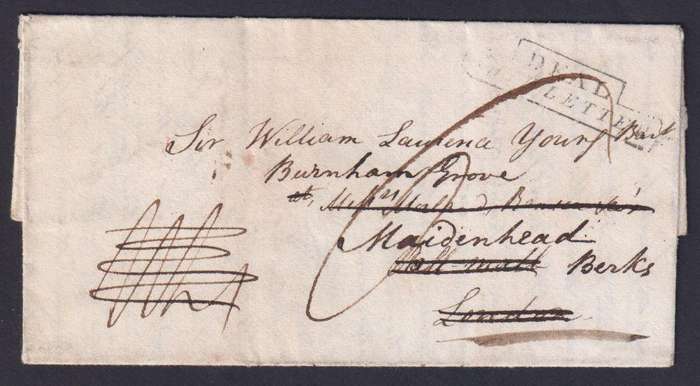 DEAL
LETTER
Sir William Laurence Young Bart
Burnham Grove
at,
Maidenhead
Pall-mall Berks
London